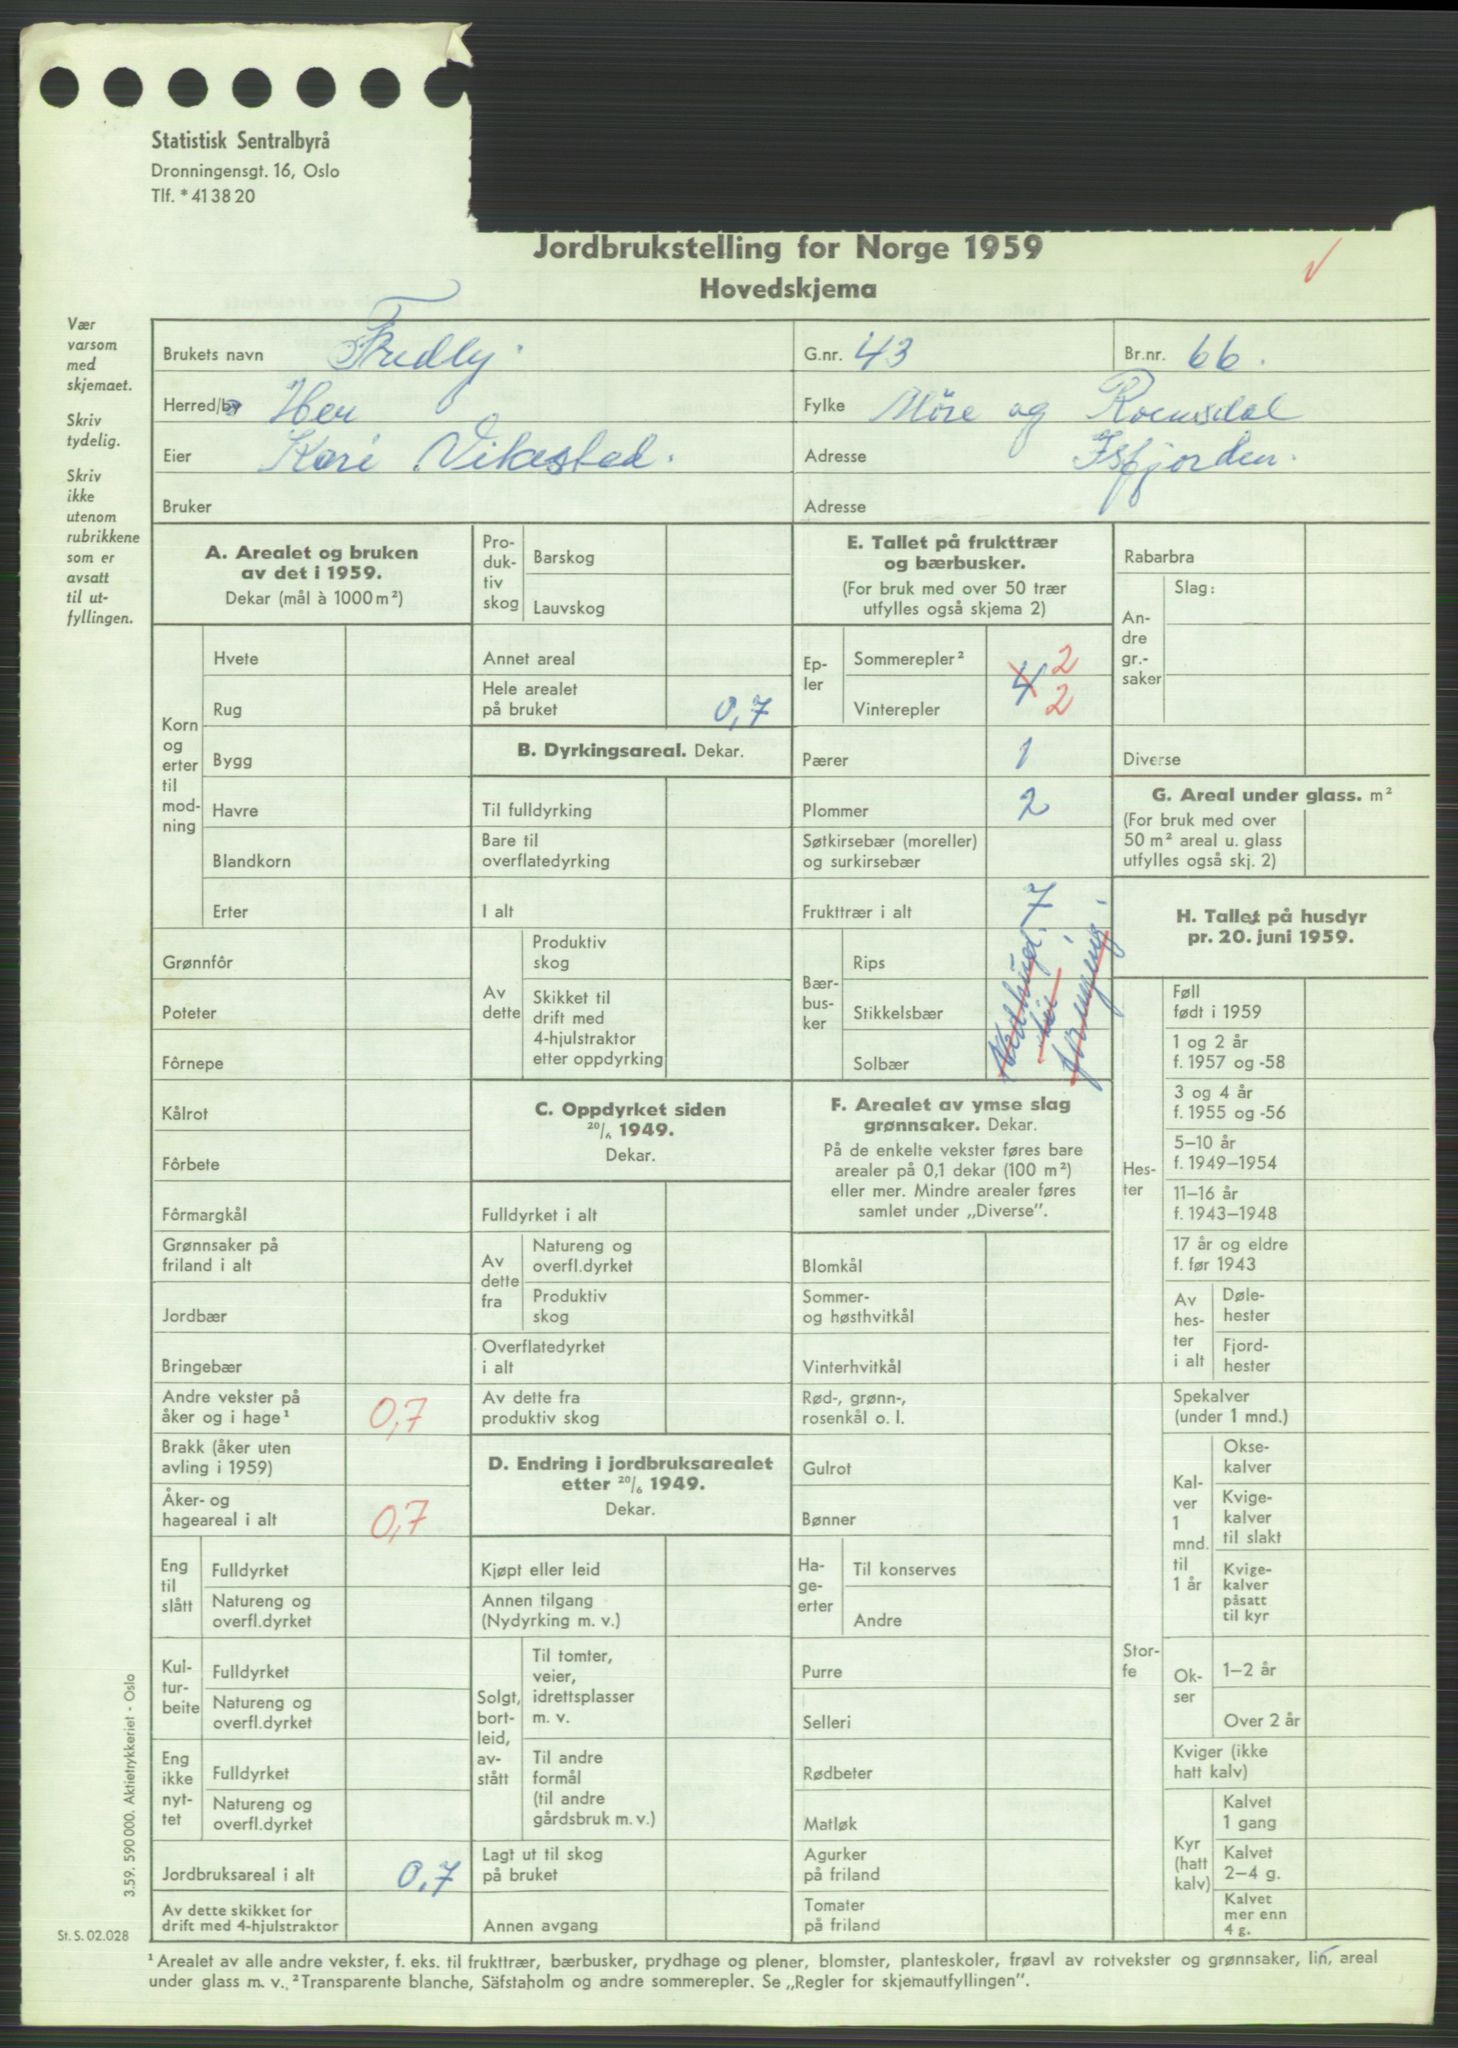 Statistisk Sentralbyrå
Dronningensgt. 16, Oslo
Tlf. * 41 38 20
Jordbrukstelling for Norge 1959
Hovedskjema
Vær
varsom
med
skjemaet.
Skriv
tydelig.
Skriv
ikke
utenom
rubrikkene
som er
avsatt
til ut-
fyllingen.
Brukets navn Fredly. G.nr. 43 Br.nr. 66.
Herred/by Hen Fylke Møre og Romsdal
Eier Kari Vikestad. Adresse Isfjorden.
Bruker Adresse
A. Arealet og bruken
av det i 1959.
Dekar (mål à 1000 m²)
Korn
og
erter
til
mod-
ning
Hvete
Rug
Bygg
Havre
Blandkorn
Erter
Grønnfôr
Poteter
Fôrnepe
Kålrot
Fôrbete
Fôrmargkål
Grønnsaker på
friland i alt
Jordbær
Bringebær
Andre vekster på
åker og i hage¹ 0,7
Brakk (åker uten
avling i 1959)
Åker- og
hageareal i alt 0,7
Eng
til
slått
Fulldyrket
Natureng og
overfl.dyrket
Kul-
tur-
beite
Fulldyrket
Natureng og
overfl.dyrket
Eng
ikke
nyt-
tet
Fulldyrket
Natureng og
overfl.dyrket
Jordbruksareal i alt 0,7
Av dette skikket for
drift med 4-hjulstraktor
Pro-
duk-
tiv
skog
Barskog
Lauvskog
Annet areal
Hele arealet
på bruket 0,7
B. Dyrkingsareal. Dekar.
Til fulldyrking
Bare til
overflatedyrking
I alt
Av
dette
Produktiv
skog
Skikket til
drift med
4-hjulstraktor
etter oppdyrking
C. Oppdyrket siden
20/6 1949.
Dekar.
Fulldyrket i alt
Av
dette
fra
Natureng og
overfl.dyrket
Produktiv
skog
Overflatedyrket
i alt
Av dette fra
produktiv skog
D. Endring i jordbruksarealet
etter 20/6 1949.
Dekar.
Kjøpt eller leid
Annen tilgang
(Nydyrking m. v.)
Solgt,
bort-
leid,
av-
stått
Til tomter,
veier,
idrettsplasser
m. v.
Til andre
formål
(til andre
gårdsbruk m. v.)
Lagt ut til skog
på bruket
Annen avgang
E. Tallet på frukttrær
og bærbusker.
(For bruk med over 50 trær
utfylles også skjema 2)
Ep-
ler
Sommerepler² 2
4
Vinterepler 2
Pærer 1
Plommer 2
Søtkirsebær (moreller)
og surkirsebær
Frukttrær i alt 7
Bær-
bus-
ker
Rips
Stikkelsbær
Solbær
F. Arealet av ymse slag
grønnsaker. Dekar.
På de enkelte vekster føres bare
arealer på 0,1 dekar (100 m²)
eller mer. Mindre arealer føres
samlet under „Diverse”.
Blomkål
Sommer-
og høsthvitkål
Vinterhvitkål
Rød-, grønn-,
rosenkål o. l.
Gulrot
Bønner
Ha-
ge-
erter
Til konserves
Andre
Purre
Selleri
Rødbeter
Matløk
Agurker
på friland
Tomater
på friland
Rabarbra
An-
dre
gr.-
saker
Slag:
Diverse
G. Areal under glass. m²
(For bruk med over
50 m² areal u. glass
utfylles også skj. 2)
H. Tallet på husdyr
pr. 20. juni 1959.
Hes-
ter
Føll
født i 1959
1 og 2 år
f. 1957 og -58
3 og 4 år
f. 1955 og -56
5–10 år
f. 1949–1954
11–16 år
f. 1943–1948
17 år og eldre
f. før 1943
Av
hes-
ter
i alt
Døle-
hester
Fjord-
hester
Stor-
fe
Spekalver
(under 1 mnd.)
Kal-
ver
1
mnd.
til
1 år
Okse-
kalver
Kvige-
kalver
til slakt
Kvige-
kalver
påsatt
til kyr
Ok-
ser
1–2 år
Over 2 år
Kviger (ikke
hatt kalv)
Kyr
(hatt
kalv)
Kalvet
1 gang
Kalvet
2–4 g.
Kalvet
mer enn
4 g.
3.59. 590 000. Aktietrykkeriet - Oslo
St. S. 02.028
¹ Arealet av alle andre vekster, f. eks. til frukttrær, bærbusker, prydhage og plener, blomster, planteskoler, frøavl av rotvekster og grønnsaker, lin, areal
under glass m. v., ² Transparente blanche, Säfstaholm og andre sommerepler. Se „Regler for skjemautfyllingen”.